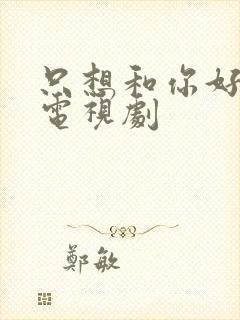 只想和你好
電視劇
鄭敏